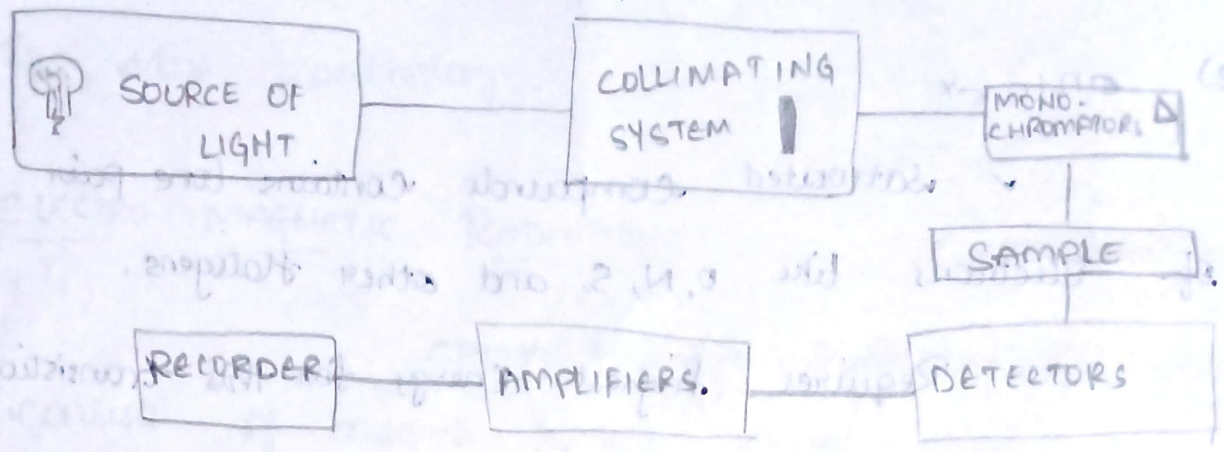 SOURCE OF
LIGHT.
COLLIMATING
SYSTEM
MONO-
CHROMATORS
SAMPLE
DETECTORS
AMPLIFIERS.
RECORDER